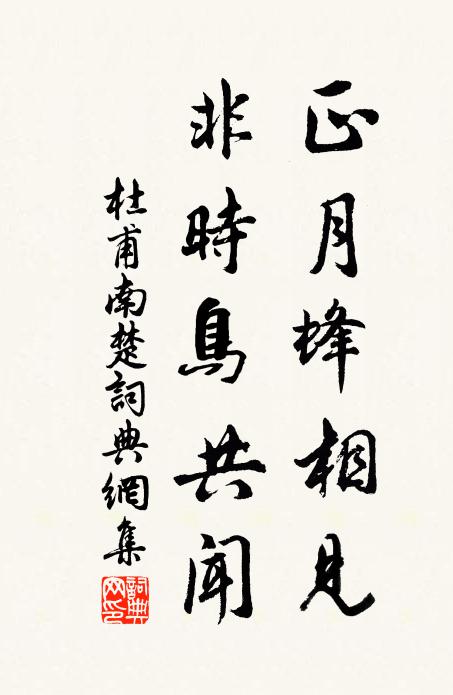 正月蜂相見
非時鳥共聞
杜甫南楚詞典網集
詞典
网印